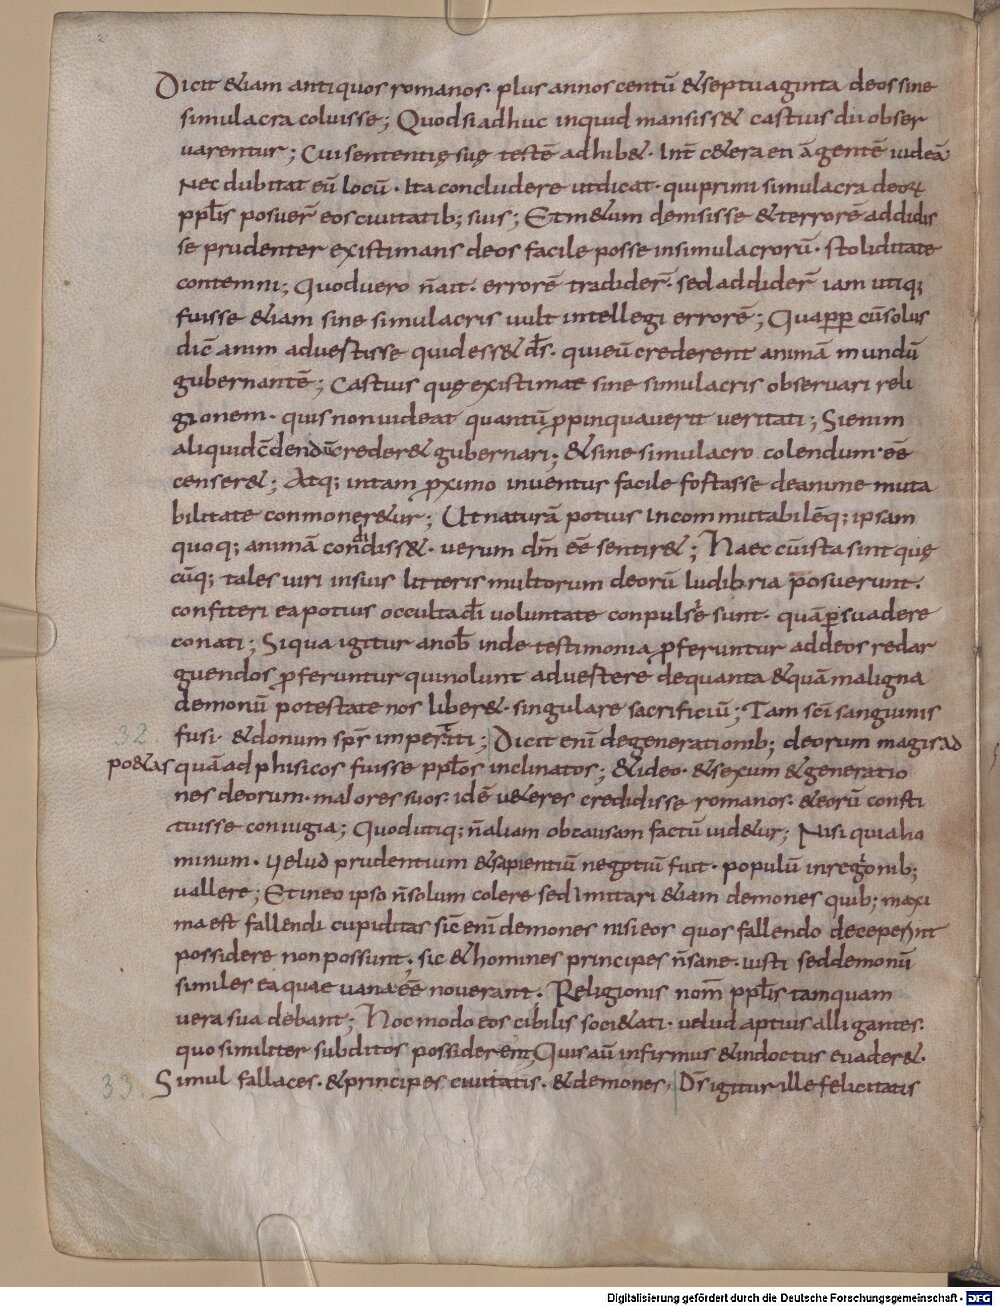 Dicit &iam antiquos romanos· plus annos centū &septuaginta deos sine
simulacra coluisse; Quodsi adhuc inquid mansiss& castius dii obser
uarentur; Cui sententię suę testē adhib&· Int̄ c&era &iā gentē uideā
Nec dubitat eū locū· Ita concludere ut dicat· qui primi simulacra deoꝝ
pp̄lis posuer̄ eos ciuitatib; suis; Et m&um demsisse &terrorē addidis
se prudenter existimans deos facile posse insimulacrorū· stoliditate
contemni; Quod uero n̄ait· errorē tradider̄· sed addider̄ iam utiq;
fuisse &iam sine simulacris uult intellegi errorē; Quapp cū solus
dic̄ anim aduestisse quid ess& d̄s· qui eū crederent animā mundū
gubernantē; Castius quę existimat sine simulacris obseruari reli
gionem· quis non uideat quantū ꝓpinquauerit ueritati; Si enim
aliquid c̄dendū creder& gubernari; &sine simulacro colendum· ēē
censer&; Atq; in tam ꝓximo inuentur facile fostasse de anime muta
bilitate conmoner&ur; Ut naturā potius Incommutabilē q; ipsam
quoq; animā condidiss&· uerum dm̄ ēē sentir&; Haec cū ista sint quę
cūq; tales uiri insuis litteris multorum deorū ludibria p̄osuerunt·
confiteri ea potius occulta d̄i uoluntate conpulsi sunt· quā ꝑsuadere
conati; Siqua igitur anob̄ inde testimonia ꝓferuntur addeos redar
guendos ꝓferuntur qui nolunt aduestere de quanta &quā maligna
demonū potestate nos liber&· singulare sacrificiū; Tam sc̄i sanguinis
32 fusi· &donum spr̄ imperatiti; Dicit enī de generationib; deorum magis ad
po&as quā ad phisicos fuisse pp̄los inclinatos; &ideo· &sexum &generatio
nes deorum· maiores suos· id ē u&eres credidisse romanos· &eorū consti
tuisse coniugia; Quod utiq; n̄ aliam ob causam factū uid&ur; Nisi quia ho
minum· uelud prudentium &sapientiū negotiū fuit· populū in regionib;
uallere; Et in eo ipso n̄ solum colere sed Imitari &iam demones quib; maxi
ma est fallendi cupiditas sic̄ enī demones nisi eos quos fallendo deceperint
possidere non possunt; sic &homines principes n̄ sane· iusti sed demonū
similes ea quae uana ēē nouerant· Religionis nom̄ pp̄lis tamquam
uera suadebant; Hoc modo eos cibilis soci&ati· uelud aptuis alligantes·
quo similiter subditos possiderent; Quis aū infirmus &indoctus euader&·
33. Simul fallaces· &principes ciuitatis· &demones, D̄s igitur ille felicitatis
Digitalisierung gefördert durch die Deutsche Forschungsgemeinschaft - DFG